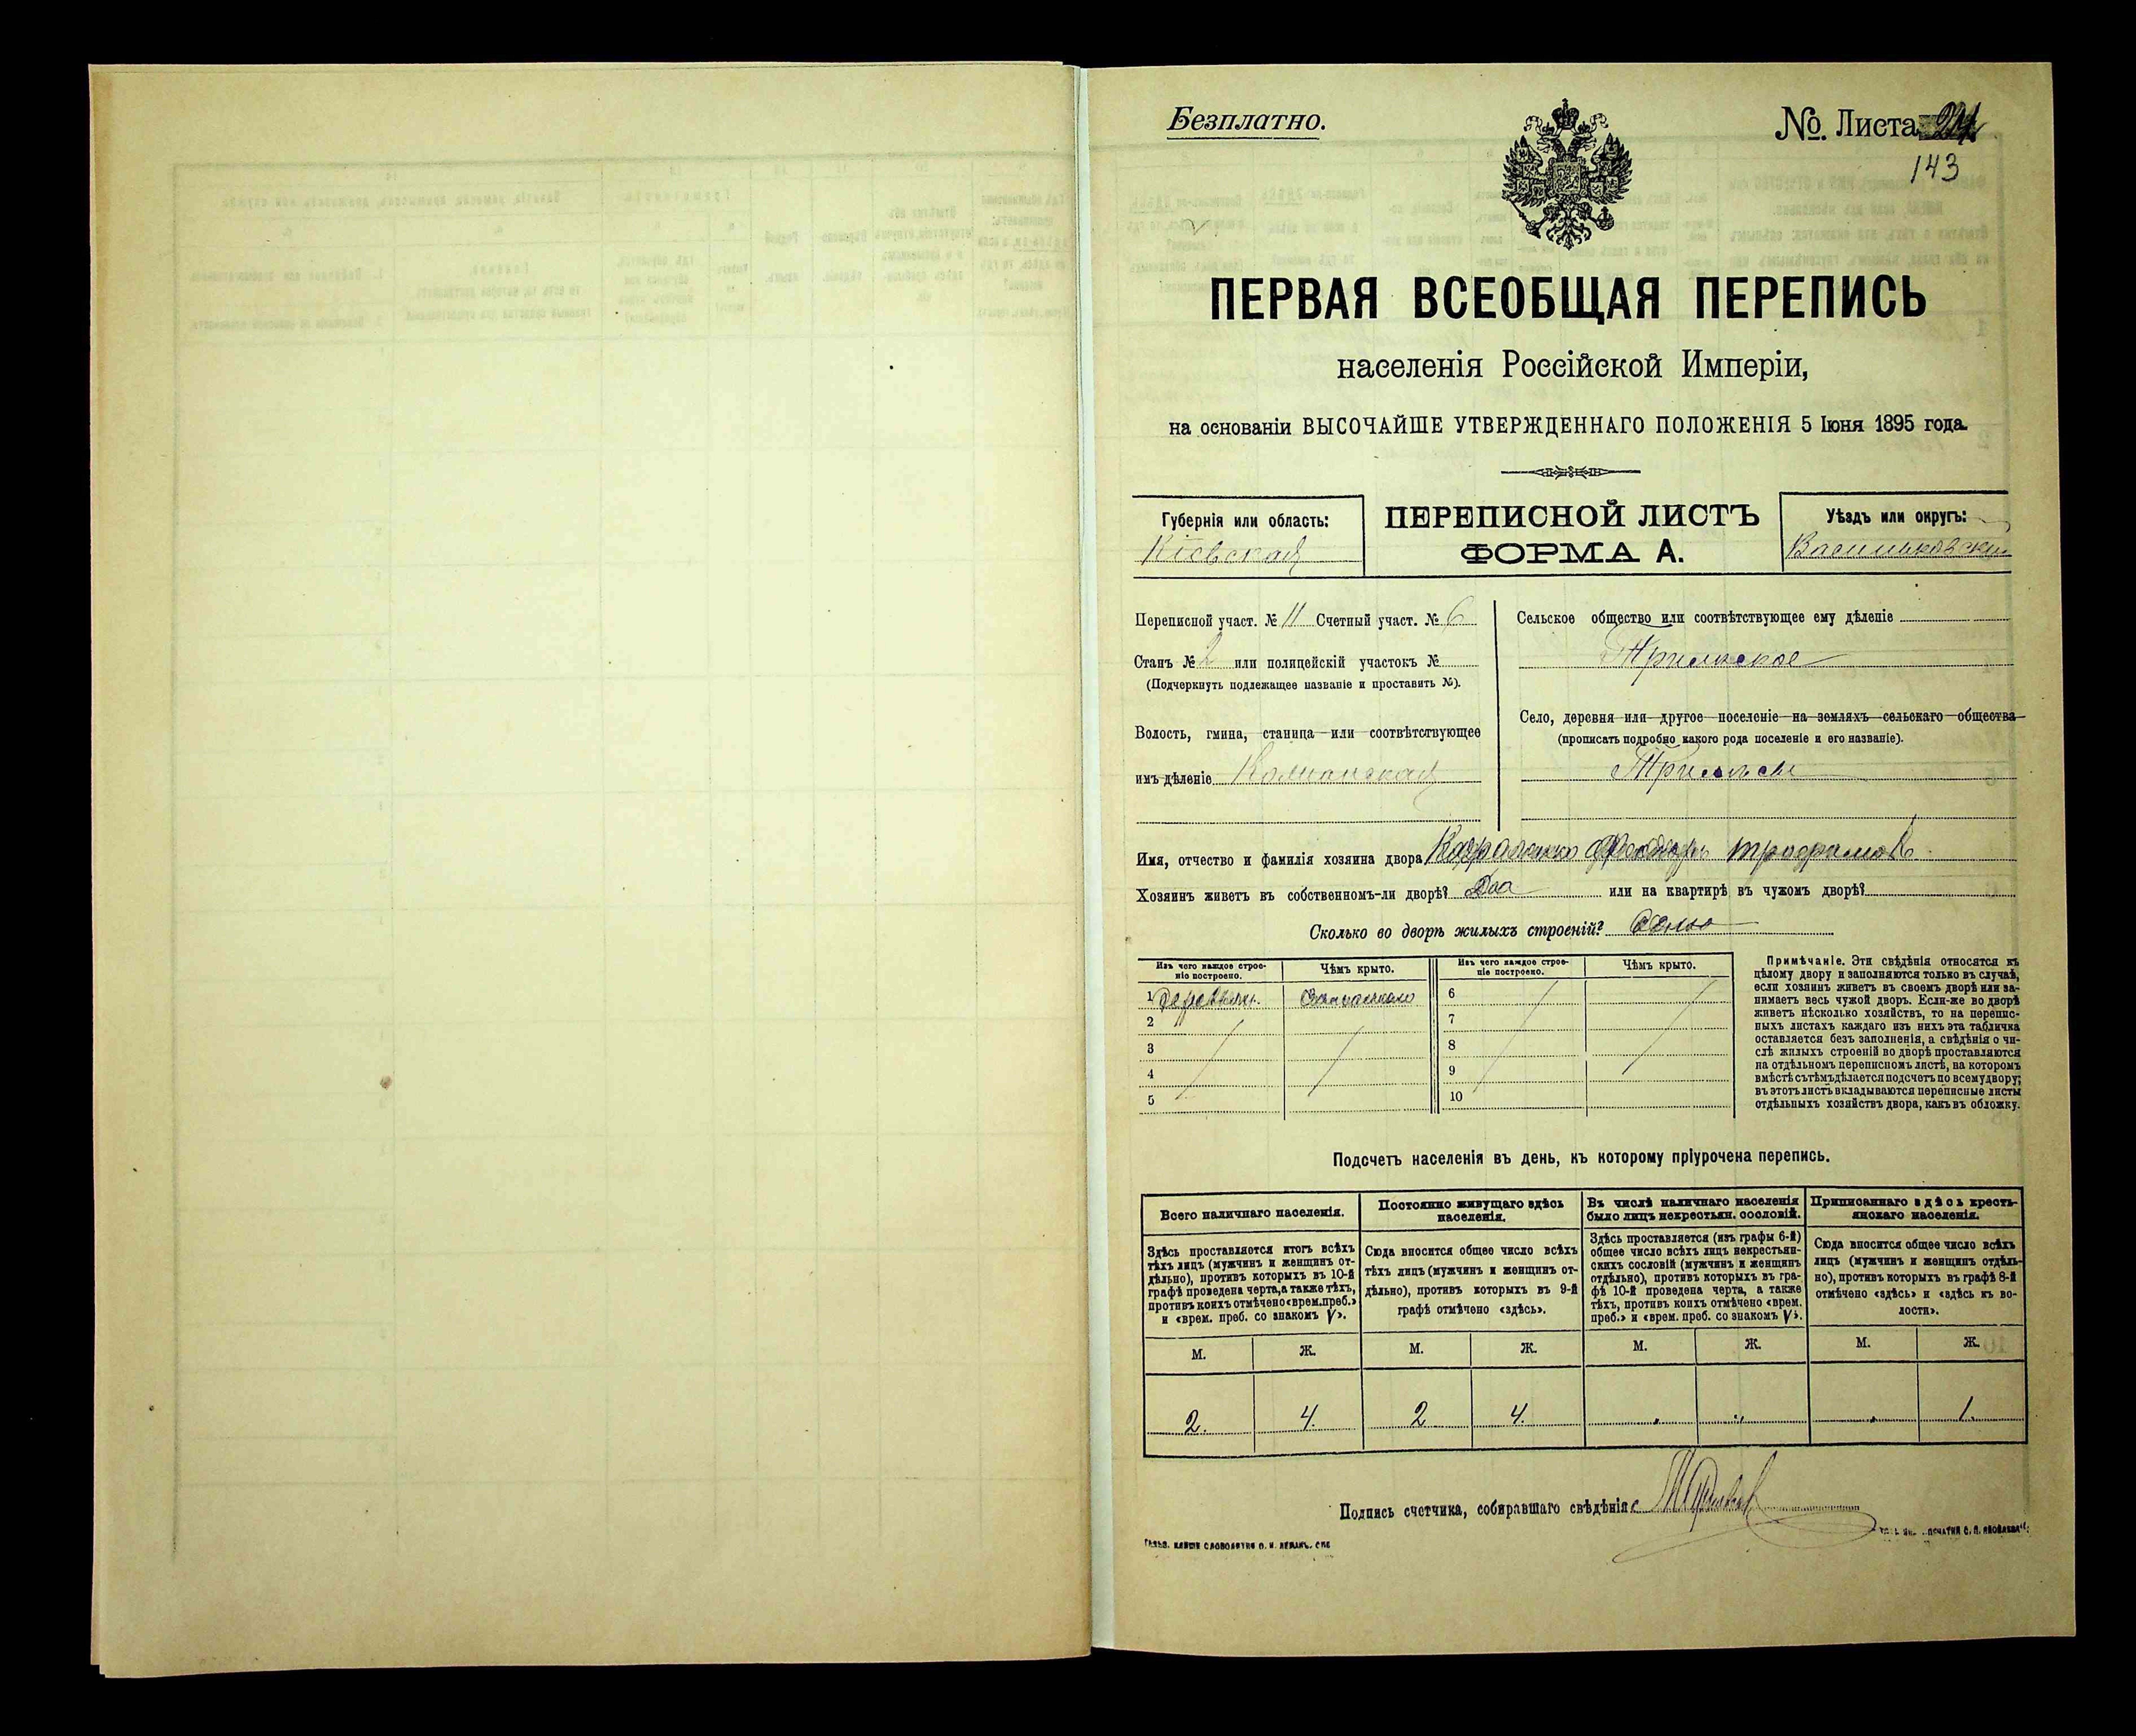 Безплатно.
№. Листа
143
ПЕРВАЯ ВСЕОБЩАЯ ПЕРЕПИСЬ
населенія Россійской Имперіи,
на основаніи ВЫСОЧАЙШЕ УТВЕРЖДЕННАГО ПОЛОЖЕНІЯ 5 Іюня 1895 года.
Губернія или область:
Кіевская
ПЕРЕПИСНОЙ ЛИСТЪ
ФОРМА А.
Уѣздъ или округъ:
Васильковскій
Переписной участ. № 11 Счетный участ. № 6
Станъ № 2 или полицейскій участокъ №
(Подчеркнуть подлежащее названіе и проставить №).
Волость, гмина, станица или соотвѣтствующее
имъ дѣленіе
Сельское общество или соотвѣтствующее ему дѣленіе
Трилѣское
Село, деревня или другое поселеніе на земляхъ сельскаго общества
(прописать подробно какого рода поселеніе и его названіе).
Трилѣсы
Имя, отчество и фамилія хозяина двора
Хозяинъ живетъ въ собственномъ-ли дворѣ? Да или на квартирѣ въ чужомъ дворѣ?
Сколько во дворѣ жилыхъ строеній?
Изъ чего каждое строе-
ніе построено.
Чѣмъ крыто.
Изъ чего каждое строе-
ніе построено.
Чѣмъ крыто.
1 деревян.
6
2
7
3
8
4
9
5
10
Примѣчаніе. Эти свѣдѣнія относятся къ
цѣлому двору и заполняются только въ случаѣ,
если хозяинъ живетъ въ своемъ дворѣ или за-
нимаетъ весь чужой дворъ. Если-же во дворѣ
живетъ нѣсколько хозяйствъ, то на перепис-
ныхъ листахъ каждаго изъ нихъ эта табличка
оставляется безъ заполненія, а свѣдѣнія о чи-
слѣ жилыхъ строеній во дворѣ проставляются
на отдѣльномъ переписномъ листѣ, на которомъ
вмѣстѣ съ тѣмъ дѣлается подсчетъ по всему двору;
въ этотъ листъ вкладываются переписные листы
отдѣльныхъ хозяйствъ двора, какъ въ обложку.
Подсчетъ населенія въ день, къ которому пріурочена перепись.
Всего наличнаго населенія.
Здѣсь проставляется итогъ всѣхъ
тѣхъ лицъ (мужчинъ и женщинъ от-
дѣльно), противъ которыхъ въ 10-й
графѣ проведена черта, а также тѣхъ,
противъ коихъ отмѣчено «врем. преб.»
и «врем. преб. со знакомъ V».
Постоянно живущаго здѣсь
населенія.
Сюда вносится общее число всѣхъ
тѣхъ лицъ (мужчинъ и женщинъ от-
дѣльно), противъ которыхъ въ 9-й
графѣ отмѣчено «здѣсь».
Въ числѣ наличнаго населенія
было лицъ некрестьян. сословій.
Здѣсь проставляется (изъ графы 6-й)
общее число всѣхъ лицъ некрестьян-
скихъ сословій (мужчинъ и женщинъ
отдѣльно), противъ которыхъ въ гра-
фѣ 10-й проведена черта, а также
тѣхъ, противъ коихъ отмѣчено «врем.
преб.» и «врем. преб. со знакомъ V».
Приписаннаго здѣсь кресть-
янскаго населенія.
Сюда вносится общее число всѣхъ
лицъ (мужчинъ и женщинъ отдѣль-
но), противъ которыхъ въ графѣ 8-й
отмѣчено «здѣсь» и «здѣсь къ во-
лости».
М. Ж. М. Ж. М. Ж. М. Ж.
2. 4. 2 4. „ „ „ 1.
Подпись счетчика, собиравшаго свѣдѣнія